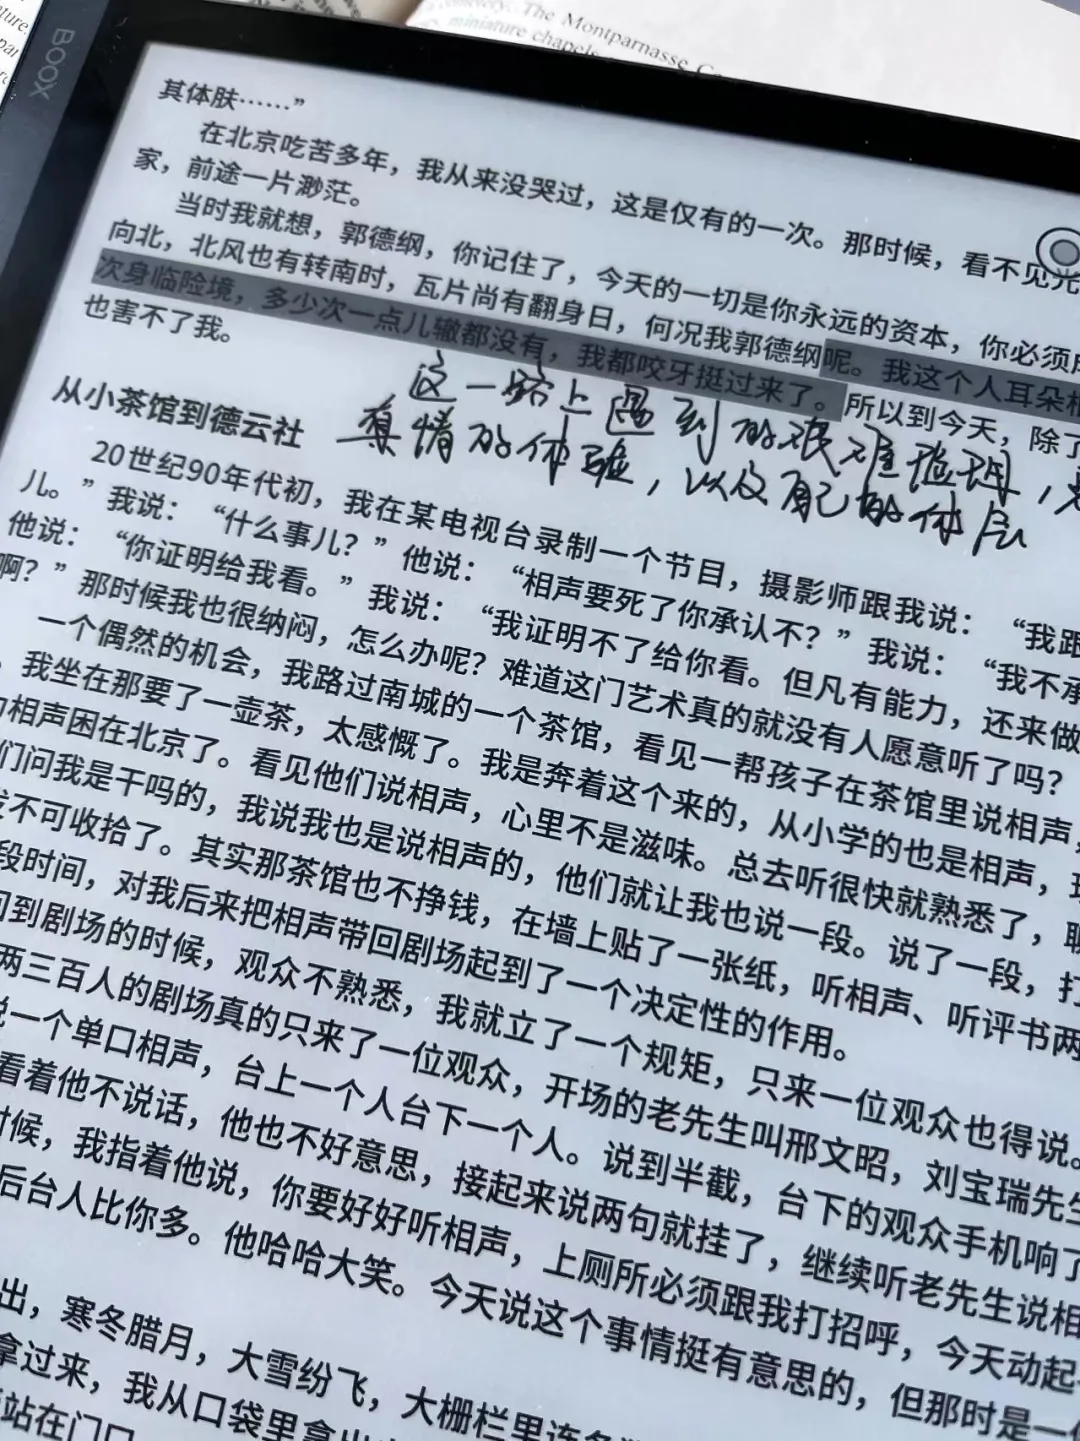 miniature chapels
The Montparnasse
BOOX
其体肤……”
在北京吃苦多年，我从来没哭过，这是仅有的一次。那时候，看不见光
家，前途一片渺茫。
当时我就想，郭德纲，你记住了，今天的一切是你永远的资本，你必须
向北，北风也有转南时，瓦片尚有翻身日，何况我郭德纲呢。我这个人耳朵
次身临险境，多少次一点儿辙都没有，我都咬牙挺过来了。所以到今天，除了
也害不了我。
这一路上遇到的艰难险阻，
真情的体验，以及自己的体
从小茶馆到德云社
20世纪90年代初，我在某电视台录制一个节目，摄影师跟我说：“我跟
儿。”我说：“什么事儿？”他说：“相声要死了你承认不？”我说：“我不承
他说：“你证明给我看。”我说：“我证明不了给你看。但凡有能力，还来做
啊？”那时候我也很纳闷，怎么办呢？难道这门艺术真的就没有人愿意听了吗？
一个偶然的机会，我路过南城的一个茶馆，看见一帮孩子在茶馆里说相声，
我坐在那要了一壶茶，太感慨了。我是奔着这个来的，从小学的也是相声，
相声困在北京了。看见他们说相声，心里不是滋味。总去听很快就熟悉了，
们问我是干吗的，我说我也是说相声的，他们就让我也说一段。说了一段，打
不可收拾了。其实那茶馆也不挣钱，在墙上贴了一张纸，听相声、听评书两
段时间，对我后来把相声带回剧场起到了一个决定性的作用。
回到剧场的时候，观众不熟悉，我就立了一个规矩，只来一位观众也得说。
两三百人的剧场真的只来了一位观众，开场的老先生叫邢文昭，刘宝瑞先生
说一个单口相声，台上一个人台下一个人。说到半截，台下的观众手机响了
看着他不说话，他也不好意思，接起来说两句就挂了，继续听老先生说相
时候，我指着他说，你要好好听相声，上厕所必须跟我打招呼，今天动起
后台人比你多。他哈哈大笑。今天说这个事情挺有意思的，但那时是一
出，寒冬腊月，大雪纷飞，大栅栏里连
拿过来，我从口袋里拿出
站在门口